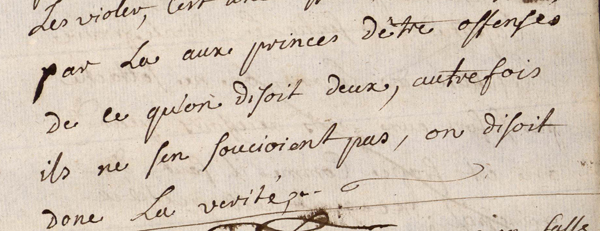 Les violer, c'est
par La aux princes d'être offensés
de ce qu'on disoit deux, autrefois
ils ne sen soucioient pas, on disoit
donc La verité,